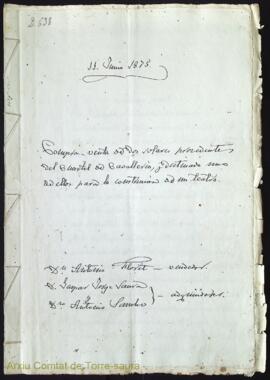 B. 638
11 Junio 1875.
Compra-venta de dos solares procedentes
del Cuartel de Caballeria, y destinado uno
de ellos para la construccion de un teatro.
Dn. Antonio Floret – vendedor.
D. Gaspar Jorge Saura
Dn. Antonio – adquiridores.
Arxiu Comtat de Torre-saura